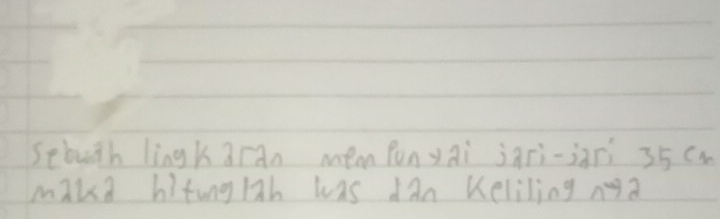 Sebuah lingkaran mempunyai jari-jari 35 cm
maka hitunglah luas dan Keliling nya